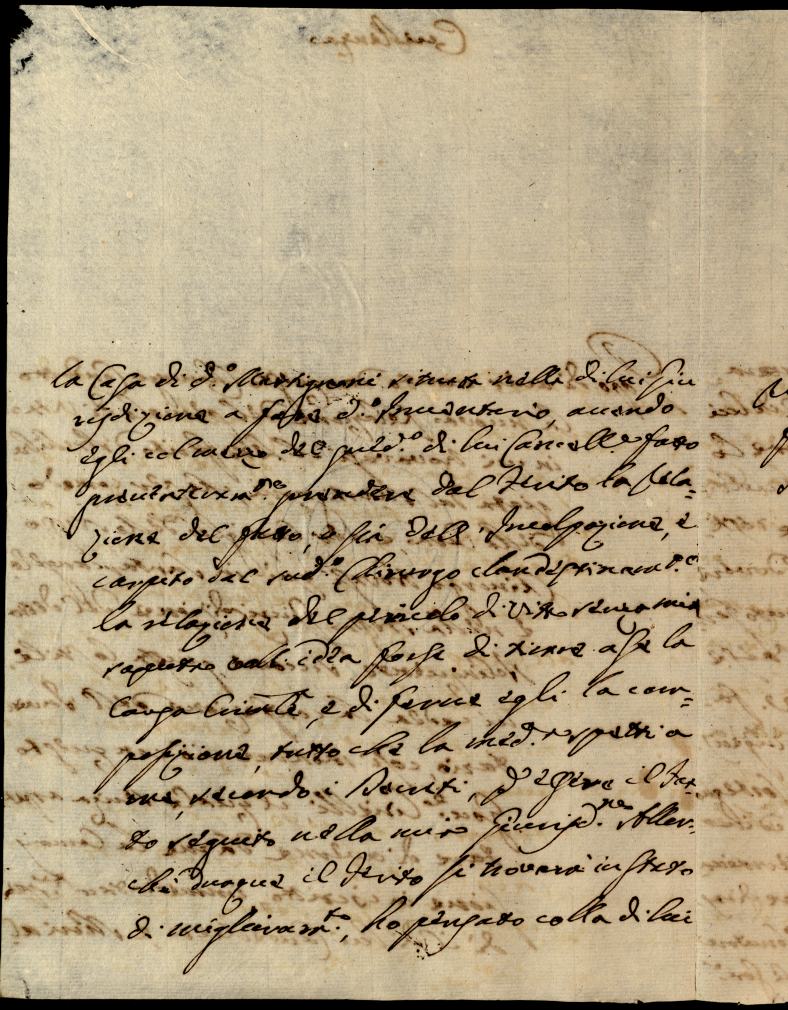 la Casa di d.º Martignoni situata nella di lui giu
risdizione a fare d.º Inuentario, auendo
egli col mezzo del pred.º di lui Cancell.e fatto
preuentiuam.te prendere dal Ferito la rela-
zione del fatto, o sia dell'Incolpazione, e
carpito dal sud.º Chirurgo clandestinam.te
la relazione del pericolo di Vita senza mia
saputa coll'idea forse di tirare a se la
Causa Crim.le, e di farne egli la com-
posizione, tutto che la med.a spetti a
me, secondo i Decreti, p essere il Fat-
to seguito nella mia Giurisd.ne Allor-
chè dunque il Ferito si trouerà in stato
di miglioram.to, ho pensato colla di lui